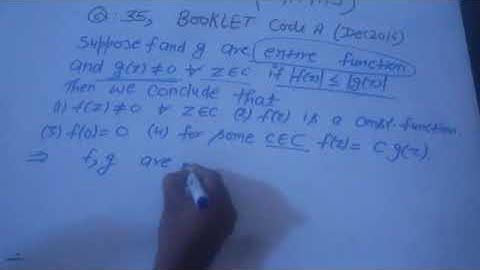 Q: 35, BOOKLET Code A (Dec2015)
Suppose f and g are entire function
and g(z) ≠ 0 ∀ z∈C if |f(z)| ≤ |g(z)|
Then we conclude that
(1) f(z) ≠ 0 ∀ z∈C (2) f(z) is a const. function.
(3) f(0) = 0 (4) for some C∈C f(z) = C g(z).
⇒ f, g are